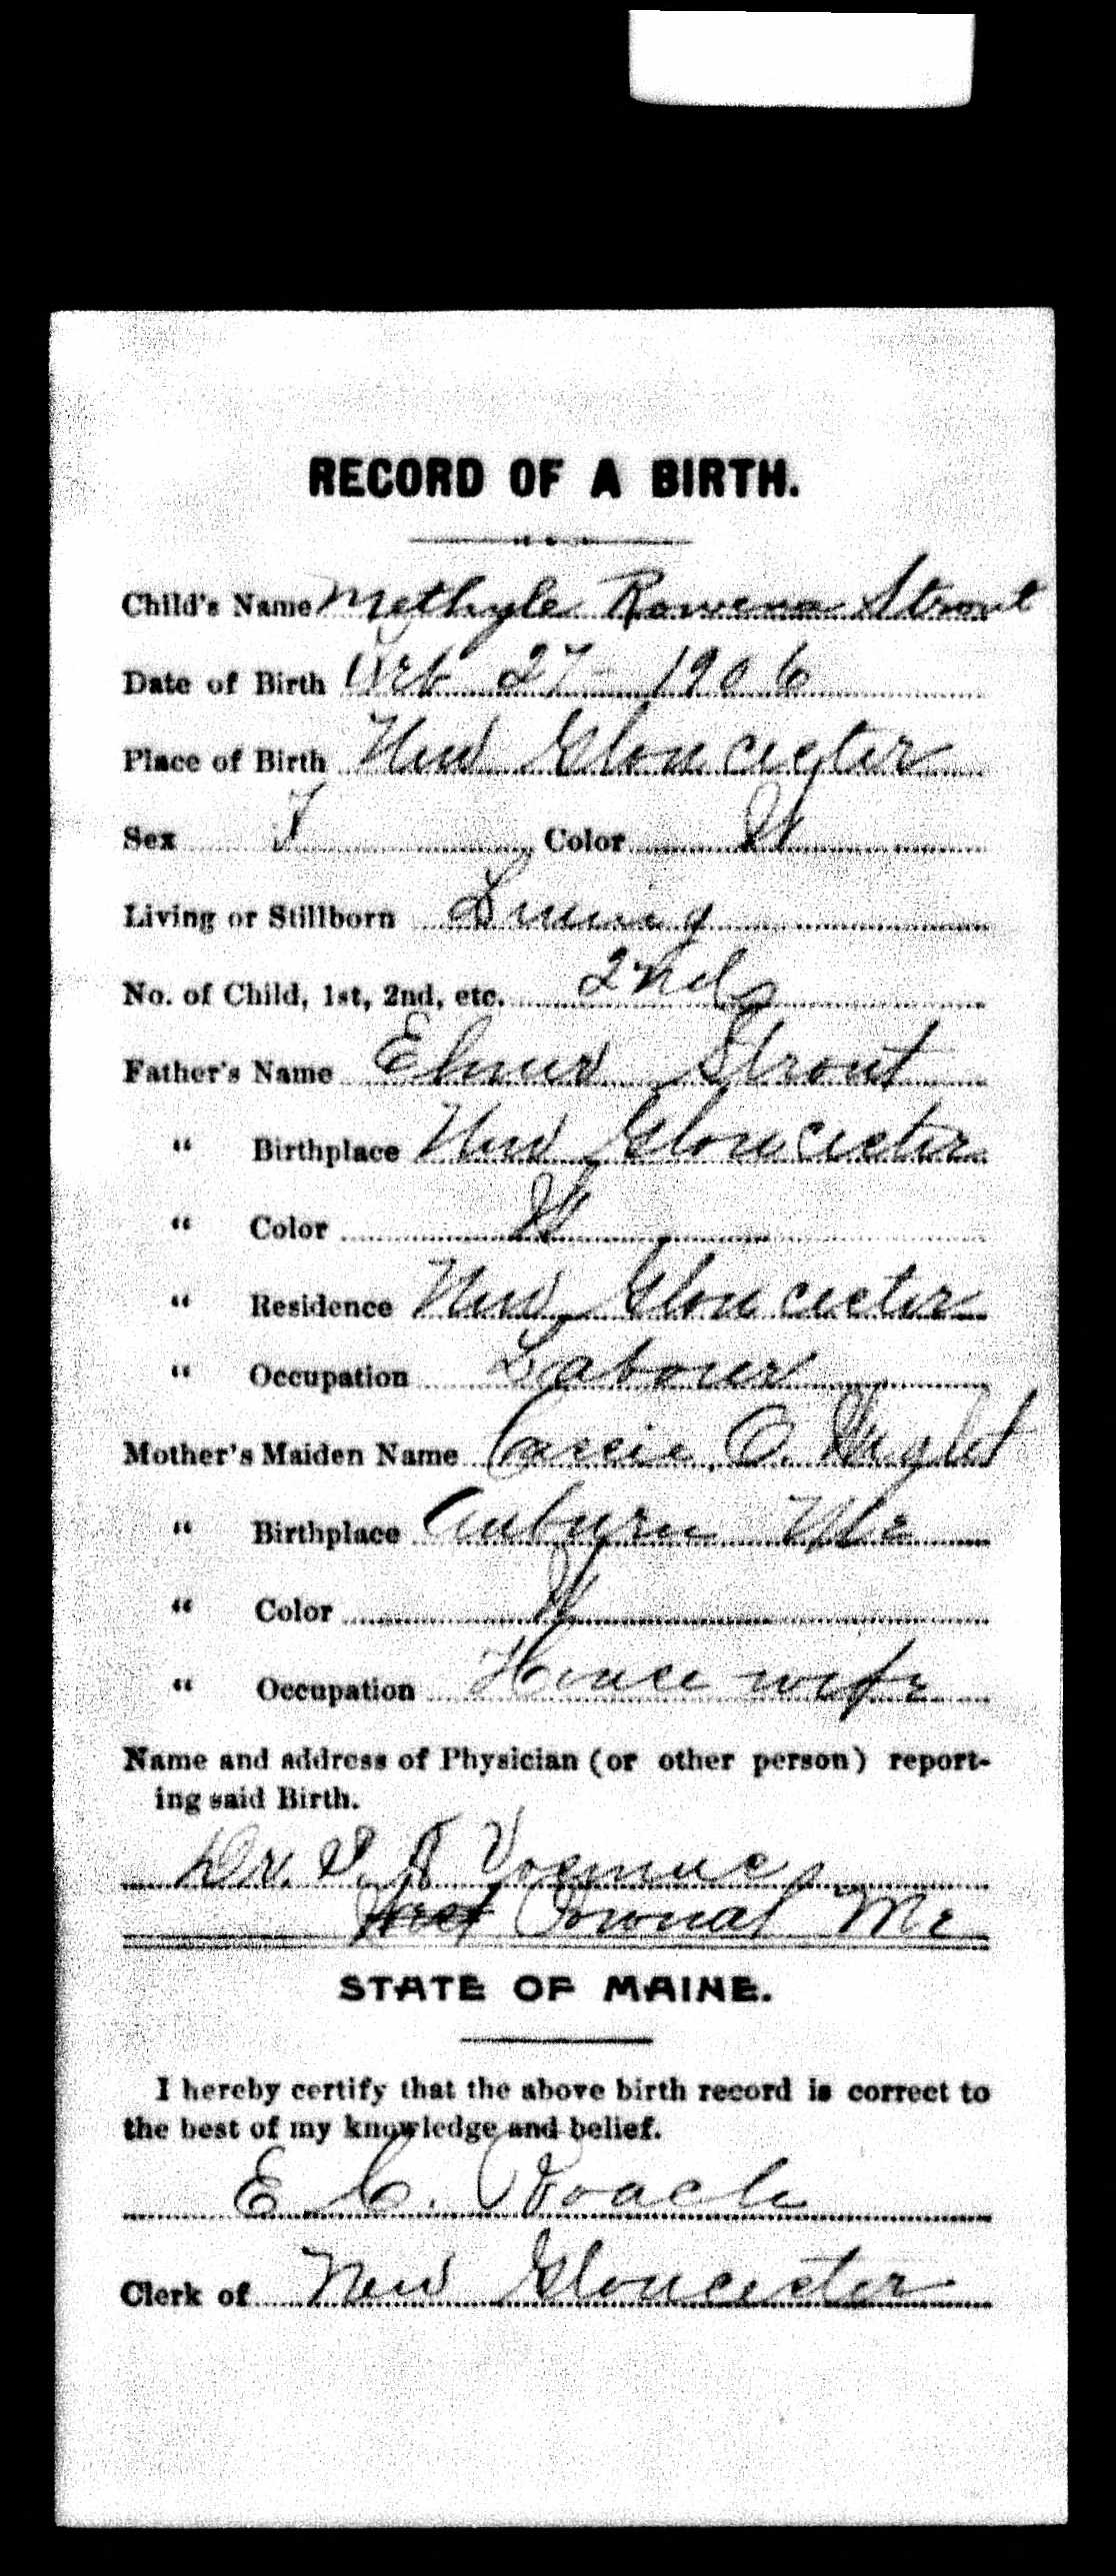 RECORD OF A BIRTH.
Child's Name Methyle Rowena Strout
Date of Birth Oct 27 - 1906
Place of Birth New Gloucester
Sex F Color W
Living or Stillborn Living
No. of Child, 1st, 2nd, etc. 2nd
Father's Name Elmer Strout
" Birthplace New Gloucester
" Color W
" Residence New Gloucester
" Occupation Labour
Mother's Maiden Name Carrie O. Wright
" Birthplace Auburn Me
" Color W
" Occupation House wife
Name and address of Physician (or other person) report-
ing said Birth.
Dr.
Pownal Me
STATE OF MAINE.
I hereby certify that the above birth record is correct to
the best of my knowledge and belief.
E C.
Clerk of New Gloucester